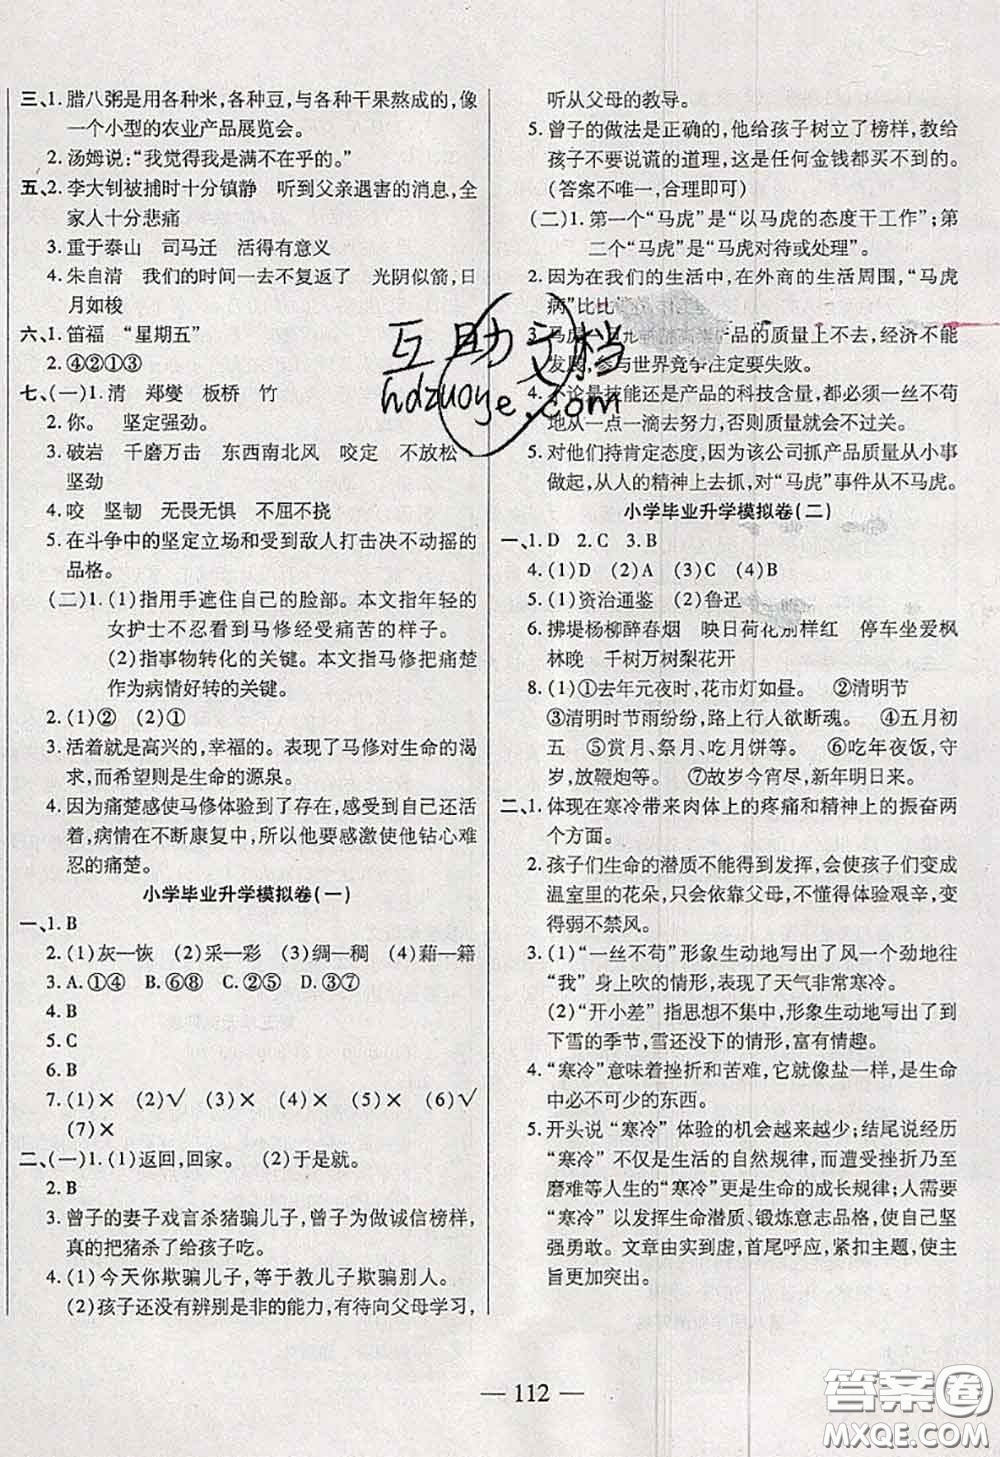 三、1. 腊八粥是用各种米,各种豆,与各种干果熬成的,像
一个小型的农业产品展览会。
2. 汤姆说:“我觉得我是满不在乎的。”
五、2. 李大钊被捕时十分镇静　听到父亲遇害的消息,全
家人十分悲痛
3. 重于泰山　司马迁　活得有意义
4. 朱自清　我们的时间一去不复返了　光阴似箭,日
月如梭
六、1. 笛福　“星期五”
2. ④②①③
七、(一)1. 清　郑燮　板桥　竹
2. 你。　坚定强劲。
3. 破岩　千磨万击　东西南北风　咬定　不放松
坚劲
4. 咬　坚韧　无畏无惧　不屈不挠
5. 在斗争中的坚定立场和受到敌人打击决不动摇的
品格。
(二)1. (1)指用手遮住自己的脸部。本文指年轻的
女护士不忍看到马修经受痛苦的样子。
(2)指事物转化的关键。本文指马修把痛楚
作为病情好转的关键。
2. (1)②　(2)①
3. 活着就是高兴的,幸福的。表现了马修对生命的渴
求,而希望则是生命的源泉。
4. 因为痛楚感使马修体验到了存在,感受到自己还活
着,病情在不断康复中,所以他要感激使他钻心难
忍的痛楚。
小学毕业升学模拟卷(一)
一、1. B
2. (1)灰—恢　(2)采—彩　(3)绸—稠　(4)藉—籍
3. A. ①④　B. ⑥⑧　C. ②⑤　D. ③⑦
4. B
5. C
6. B
7. (1)×　(2)√　(3)×　(4)×　(5)×　(6)√
(7)×
二、(一)1. (1)返回,回家。　(2)于是就。
2. B
3. 曾子的妻子戏言杀猪骗儿子,曾子为做诚信榜样,
真的把猪杀了给孩子吃。
4. (1)今天你欺骗儿子,等于教儿子欺骗别人。
(2)孩子还没有辨别是非的能力,有待向父母学习,
听从父母的教导。
5. 曾子的做法是正确的,他给孩子树立了榜样,教给
孩子不要说谎的道理,这是任何金钱都买不到的。
(答案不唯一,合理即可)
(二)1. 第一个“马虎”是“以马虎的态度干工作”;第
二个“马虎”是“马虎对待或处理”。
2. 因为在我们的生活中,在外商的生活周围,“马虎
病”比比
3. 马虎 产品的质量上不去,经济不能
发展,参与世界竞争注定要失败。
4. 不论是技能还是产品的科技含量,都必须一丝不苟
地从一点一滴去努力,否则质量就会不过关。
5. 对此持肯定态度,因为该公司抓产品质量从小事
做起,从人的精神上去抓,对“马虎”事件从不马虎。
小学毕业升学模拟卷(二)
一、1. D　2. C　3. B
4. (1)D　(2)A　(3)C　(4)B
5. (1)资治通鉴　(2)鲁迅
6. 拂堤杨柳醉春烟　映日荷花别样红　停车坐爱枫
林晚　千树万树梨花开
8. (1)①去年元夜时,花市灯如昼。　②清明节
③清明时节雨纷纷,路上行人欲断魂。　④五月初
五　⑤赏月、祭月、吃月饼等。　⑥吃年夜饭,守
岁,放鞭炮等。　⑦故岁今宵尽,新年明日来。
二、1. 体现在寒冷带来肉体上的疼痛和精神上的振奋两
个方面。
2. 孩子们生命的潜质不能得到发挥,会使孩子们变成
温室里的花朵,只会依靠父母,不懂得体验艰辛,变
得弱不禁风。
3. (1)“一丝不苟”形象生动地写出了风一个劲地往
“我”身上吹的情形,表现了天气非常寒冷。
(2)“开小差”指思想不集中,形象生动地写出了到
下雪的季节,雪还没下的情形,富有情趣。
4. “寒冷”意味着挫折和苦难,它就像盐一样,是生命
中必不可少的东西。
5. 开头说“寒冷”体验的机会越来越少;结尾说经历
“寒冷”不仅是生活的自然规律,而遭受挫折乃至
磨难等人生的“寒冷”更是生命的成长规律;人需要
“寒冷”以发挥生命潜质、锻炼意志品格,使人更加坚
强勇敢。文章由实到虚,首尾呼应,紧扣主题,使主
旨更加突出。
— 112 —
互助文档
hdzuoye.com
答案圈
MXQE.COM